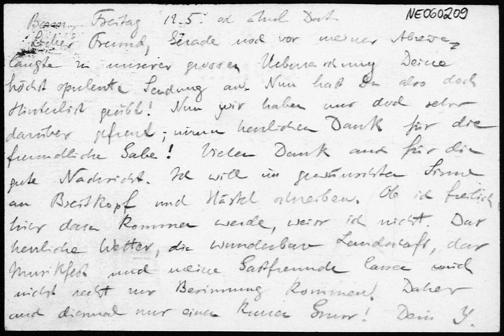 NE060209
Bern, Freitag 12.5.
Lieber Freund, Gerade noch vor meiner Abreise
langte zu unserer grossen Ueberraschung Deine
höchst opulente Sendung an. Nun hast Du also doch
Hinterlist geübt! Nun wir haben uns doch sehr
darüber gefreut; nimm herzlichen Dank für die
freundliche Gabe! Vielen Dank auch für die
gute Nachricht. Ich will im gewünschten Sinne
an Breitkopf und Härtel schreiben. Ob ich freilich
hier dazu kommen werde, weiss ich nicht. Das
herrliche Wetter, die wunderbare Landschaft, das
Musikfest und meine Gastfreunde lassen mich
nicht recht zur Besinnung kommen. Daher
auch diesmal nur einen kurzen Gruss! Dein